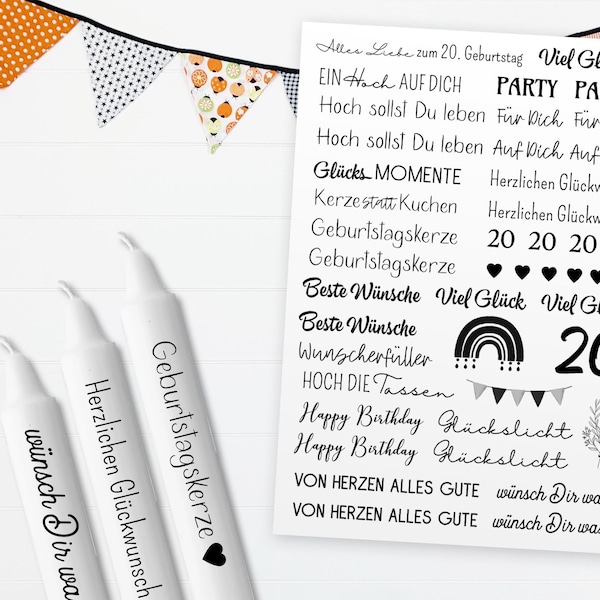 Alles Liebe zum 20. Geburtstag Viel Glück
EIN Hoch AUF DICH PARTY PA
Hoch sollst Du leben Für Dich Für
Hoch sollst Du leben Auf Dich Auf
Glücks MOMENTE Herzlichen Glückw
Kerze statt Kuchen Herzlichen Glückwu
Geburtstagskerze 20 20 20
Geburtstagskerze
Beste Wünsche Viel Glück Viel Glü
Beste Wünsche
20
Wunscherfüller
HOCH DIE Tassen
Happy Birthday Glückslicht
Happy Birthday Glückslicht
VON HERZEN ALLES GUTE wünsch Dir wa
VON HERZEN ALLES GUTE wünsch Dir was
wünsch Dir was
Herzlichen Glückwunsch
Geburtstagskerze